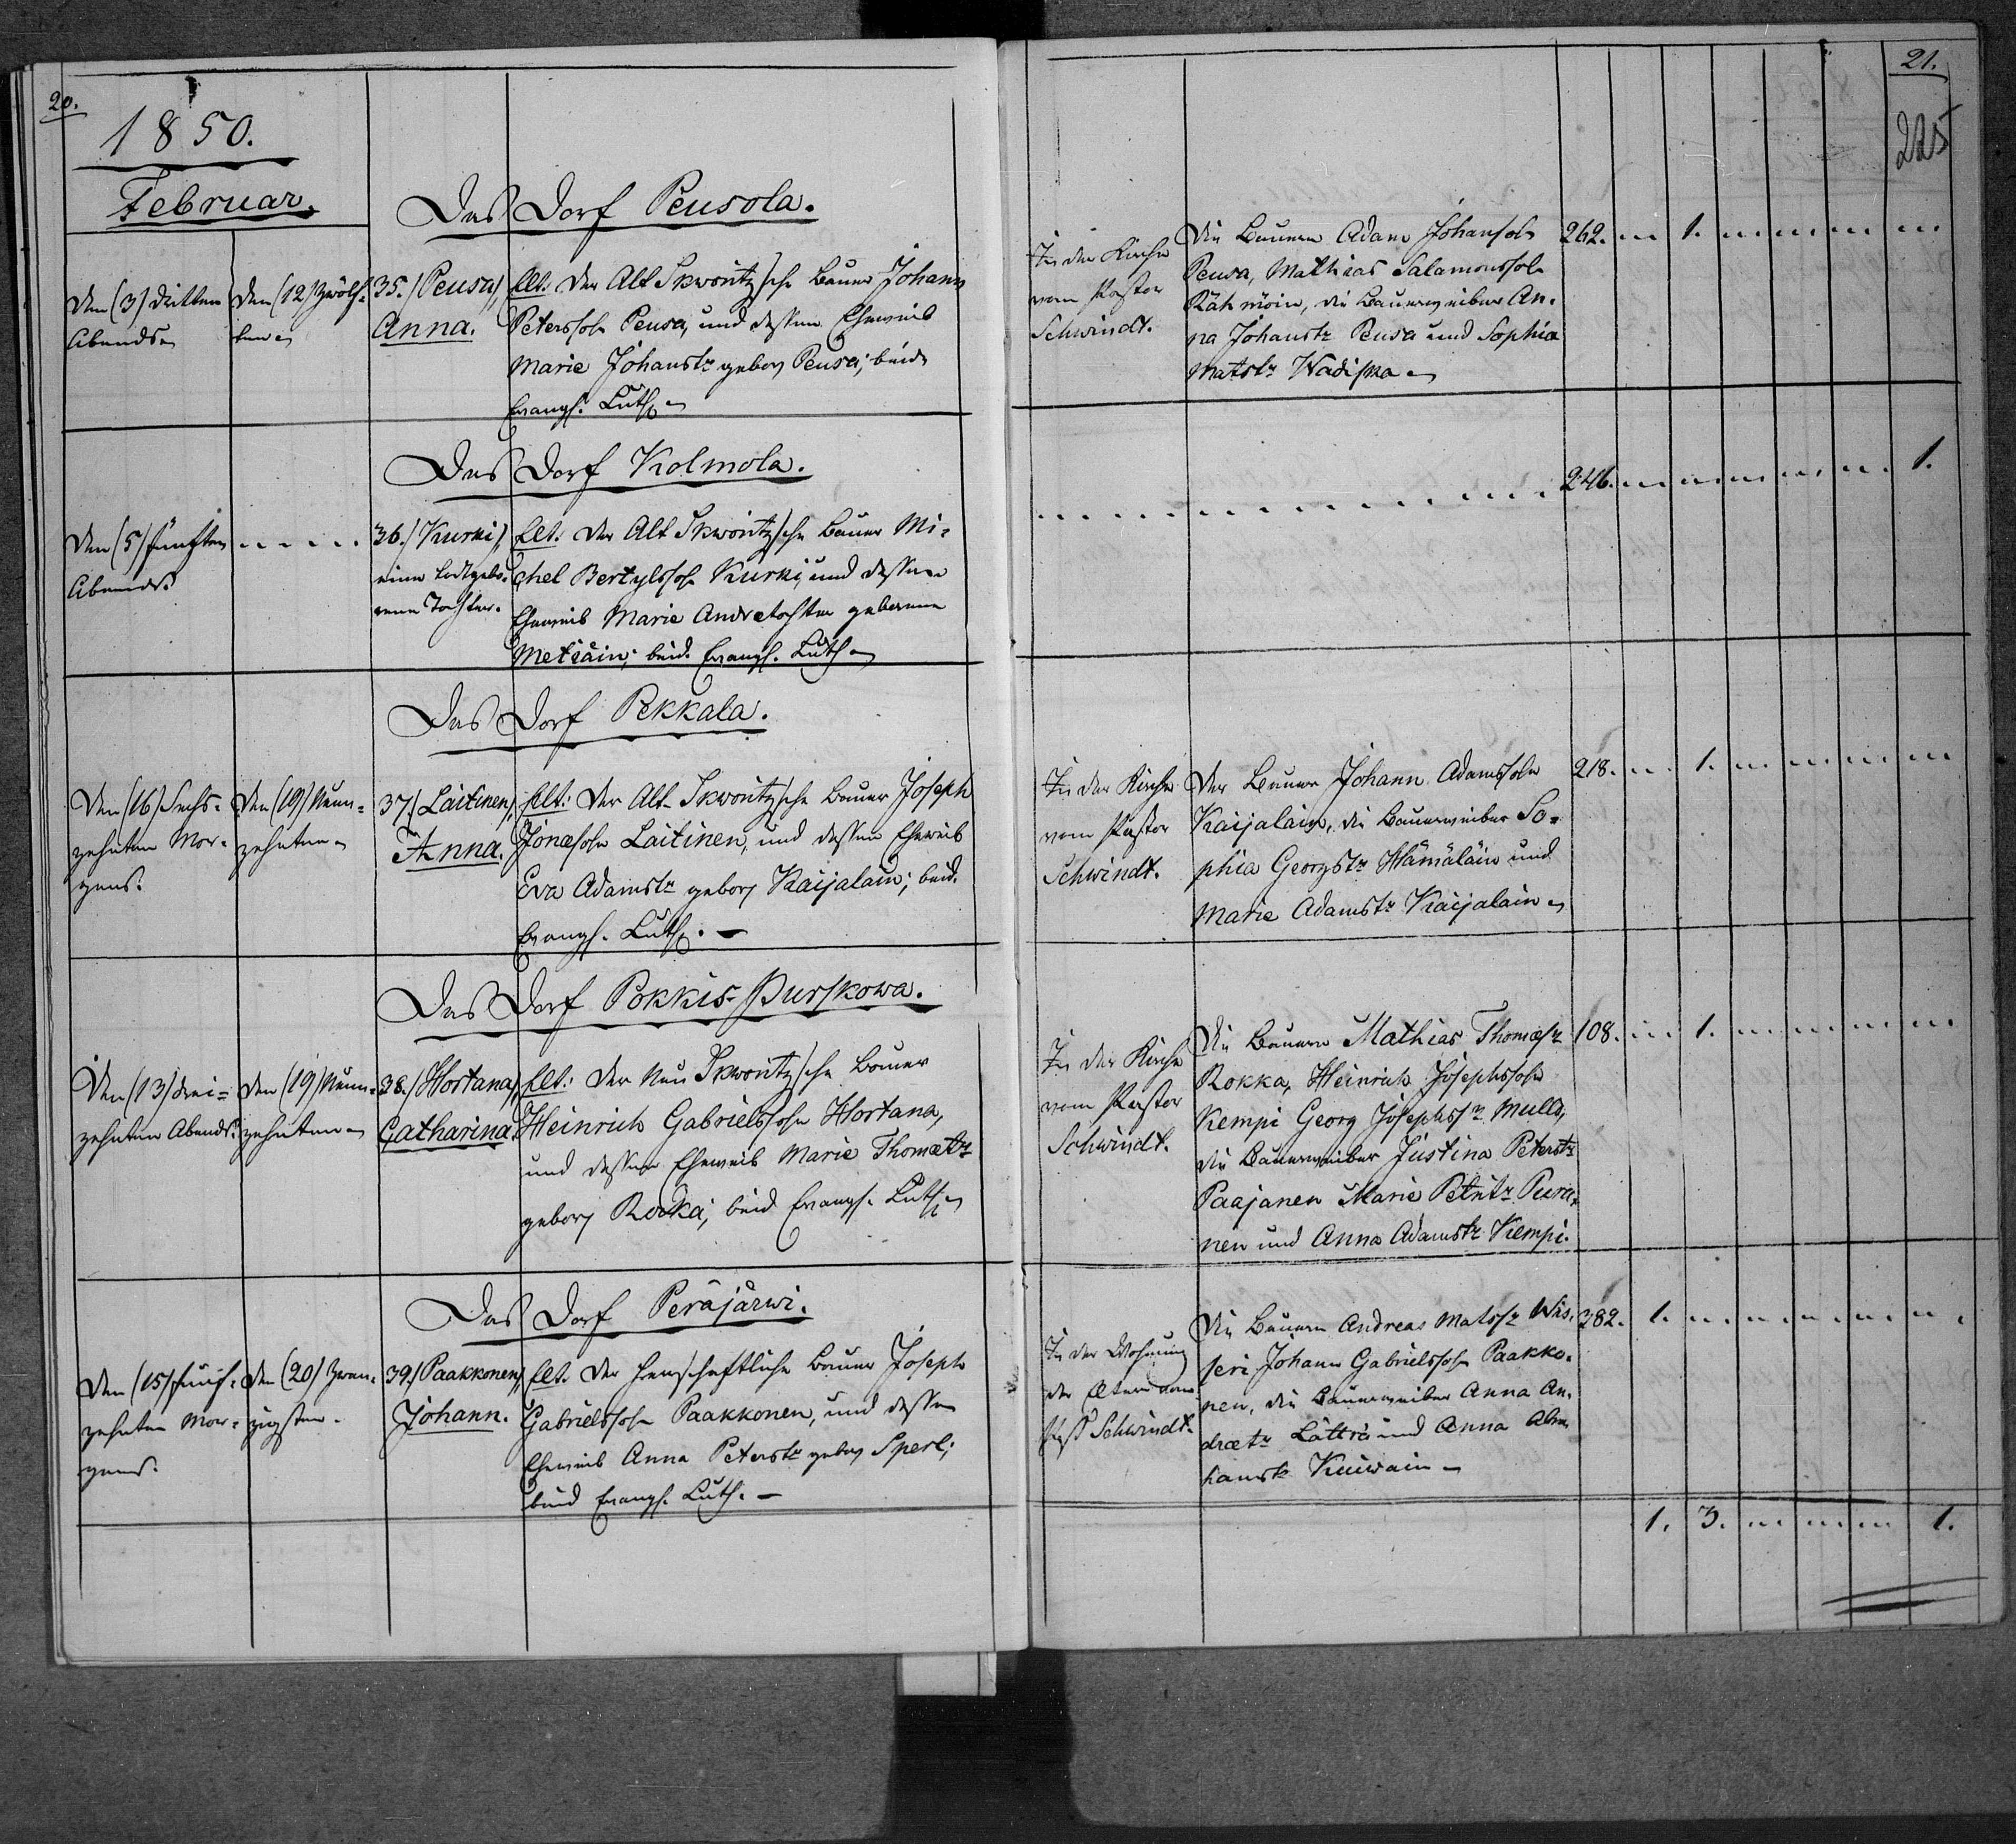 20.
1850.
Februar.
Das Dorf Peusola.
Den (3) dritten
Abends
Den (12) zwölf-
ten
35./ Peusa,
Anna.
Elt: Der Alt Skworitz'sche Bauer Johann
Peterssohn Peusa, und dessen Eheweib
Marie Johanstr geborn Peusa; beide
Evangl. Luth.
Das Dorf Kolmola.
Den (5) fünften
Abends.
36./ Kurki,
eine todtgebo-
rene Tochter.
Elt: Der Alt Skworitz'sche Bauer Mi-
chel Bertylssohn Kurki, und dessen
Eheweib Marie Andretochter geborene
Metiäin; beid. Evangl. Luth.
Das Dorf Pekkala.
Den (16) Sechs-
zehnten Mor-
gens.
Den (19) Neun-
zehnten
37./ Laitinen,
Anna.
Elt: Der Alt Skworitz'sche Bauer Joseph
Jonæsohn Laitinen, und dessen Eheweib
Eva Adamstr geborn Kaijalain; beid.
Evangl. Luth. —
Das Dorf Pokkis-Purskowa.
Den (13) drei-
zehnten Abends.
Den (19) Neun-
zehnten
38./ Hortana,
Catharina.
Elt: Der Neu Skworitz'sche Bauer
Heinrich Gabrielssohn Hortana,
und dessen Eheweib Marie Thomætr
geborn Rokka; beid Evangl. Luth.
Das Dorf Peräjärwi.
Den (15) fünf-
zehnten Mor-
gens.
Den (20) Zwan-
zigsten.
39./ Paakkonen,
Johann.
Elt. Der herrschaftliche Bauer Joseph
Gabrielssohn Paakkonen, und dessen
Eheweib Anna Peterstr geborn Sperl;
beid Evangl. Luth. —
21.
225
In der Kirche
vom Pastor
Schwindt.
Die Bauern Adam Johansohn
Peusa, Mathias Salamonssohn
Rähmöin, die Bauerweiber An-
na Johanstr Peusa und Sophia
Matstr Wadiska
262. 1.
246. 1.
In der Kirche
vom Pastor
Schwindt.
Der Bauer Johann Adamssohn
Kaijalain, die Bauerweiber So-
phia Georgstr Hämäläin und
Marie Adamstr Kaijalain
218. 1.
In der Kirche
vom Pastor
Schwindt.
Die Bauern Mathias Thomæsn
Rokka, Heinrich Josephssohn
Kempi Georg Josephssn Mulls,
die Bauerweiber Justina Peterstr
Paajanen Marie Petritr Pura-
nen und Anna Adamstr Kempi.
108. 1.
In der Wohnung
der Eltern vom
Past Schwindt.
Die Bauern Andreas Matssn Wäs-
seri Johann Gabrielssohn Paakko-
nen, die Bauerweiber Anna An-
drætr Lättiä und Anna
hamstr Kuiwain
382. 1.
1. 3. 1.